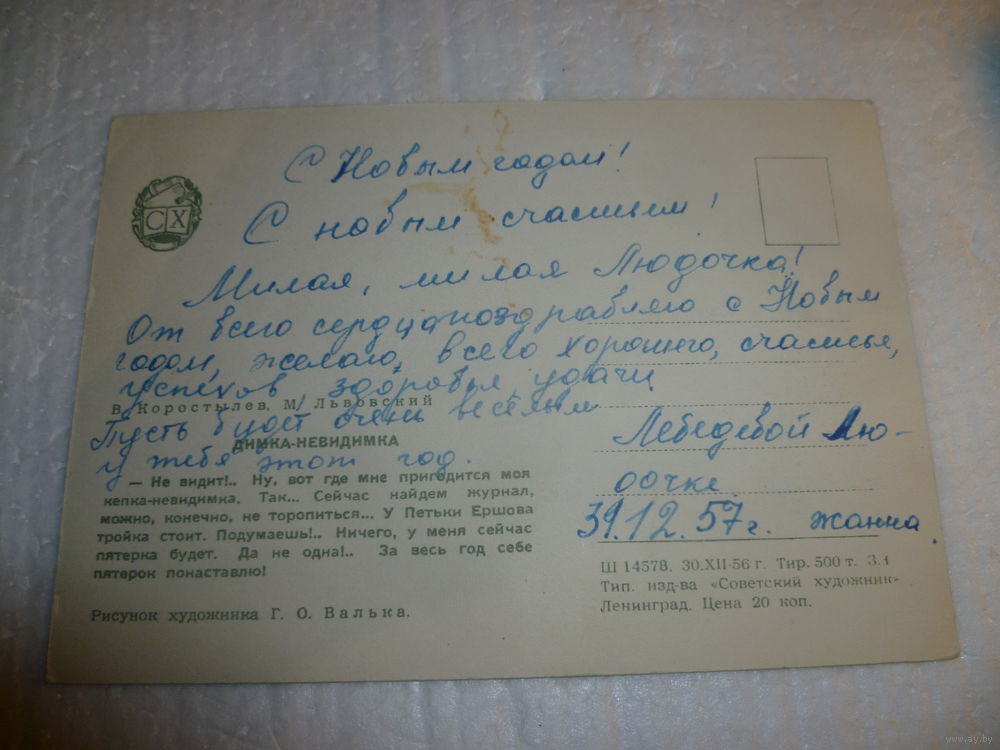 С Новым годом!
С новым счастьем!
СХ
Милая, милая Людочка!
От всего сердца поздравляю с Новым
годом, желаю, всего хорошего, счастья,
успехов здоровья, удачи
Пусть будет очень весёлым
у тебя этот год.
В. Коростылев, М. Львовский
ДИМКА-НЕВИДИМКА
— Не видит!.. Ну, вот где мне пригодится моя
кепка-невидимка. Так... Сейчас найдем журнал,
можно, конечно, не торопиться... У Петьки Ершова
тройка стоит. Подумаешь!.. Ничего, у меня сейчас
пятерка будет. Да не одна!.. За весь год себе
пятерок понаставлю!
Рисунок художника Г. О. Валька.
Лебедевой Лю-
дочке
31.12.57 г. Жанна
Ш 14578. 30.XII-56 г. Тир. 500 т. З.1
Тип. изд-ва «Советский художник»
Ленинград. Цена 20 коп.
www.ay.by